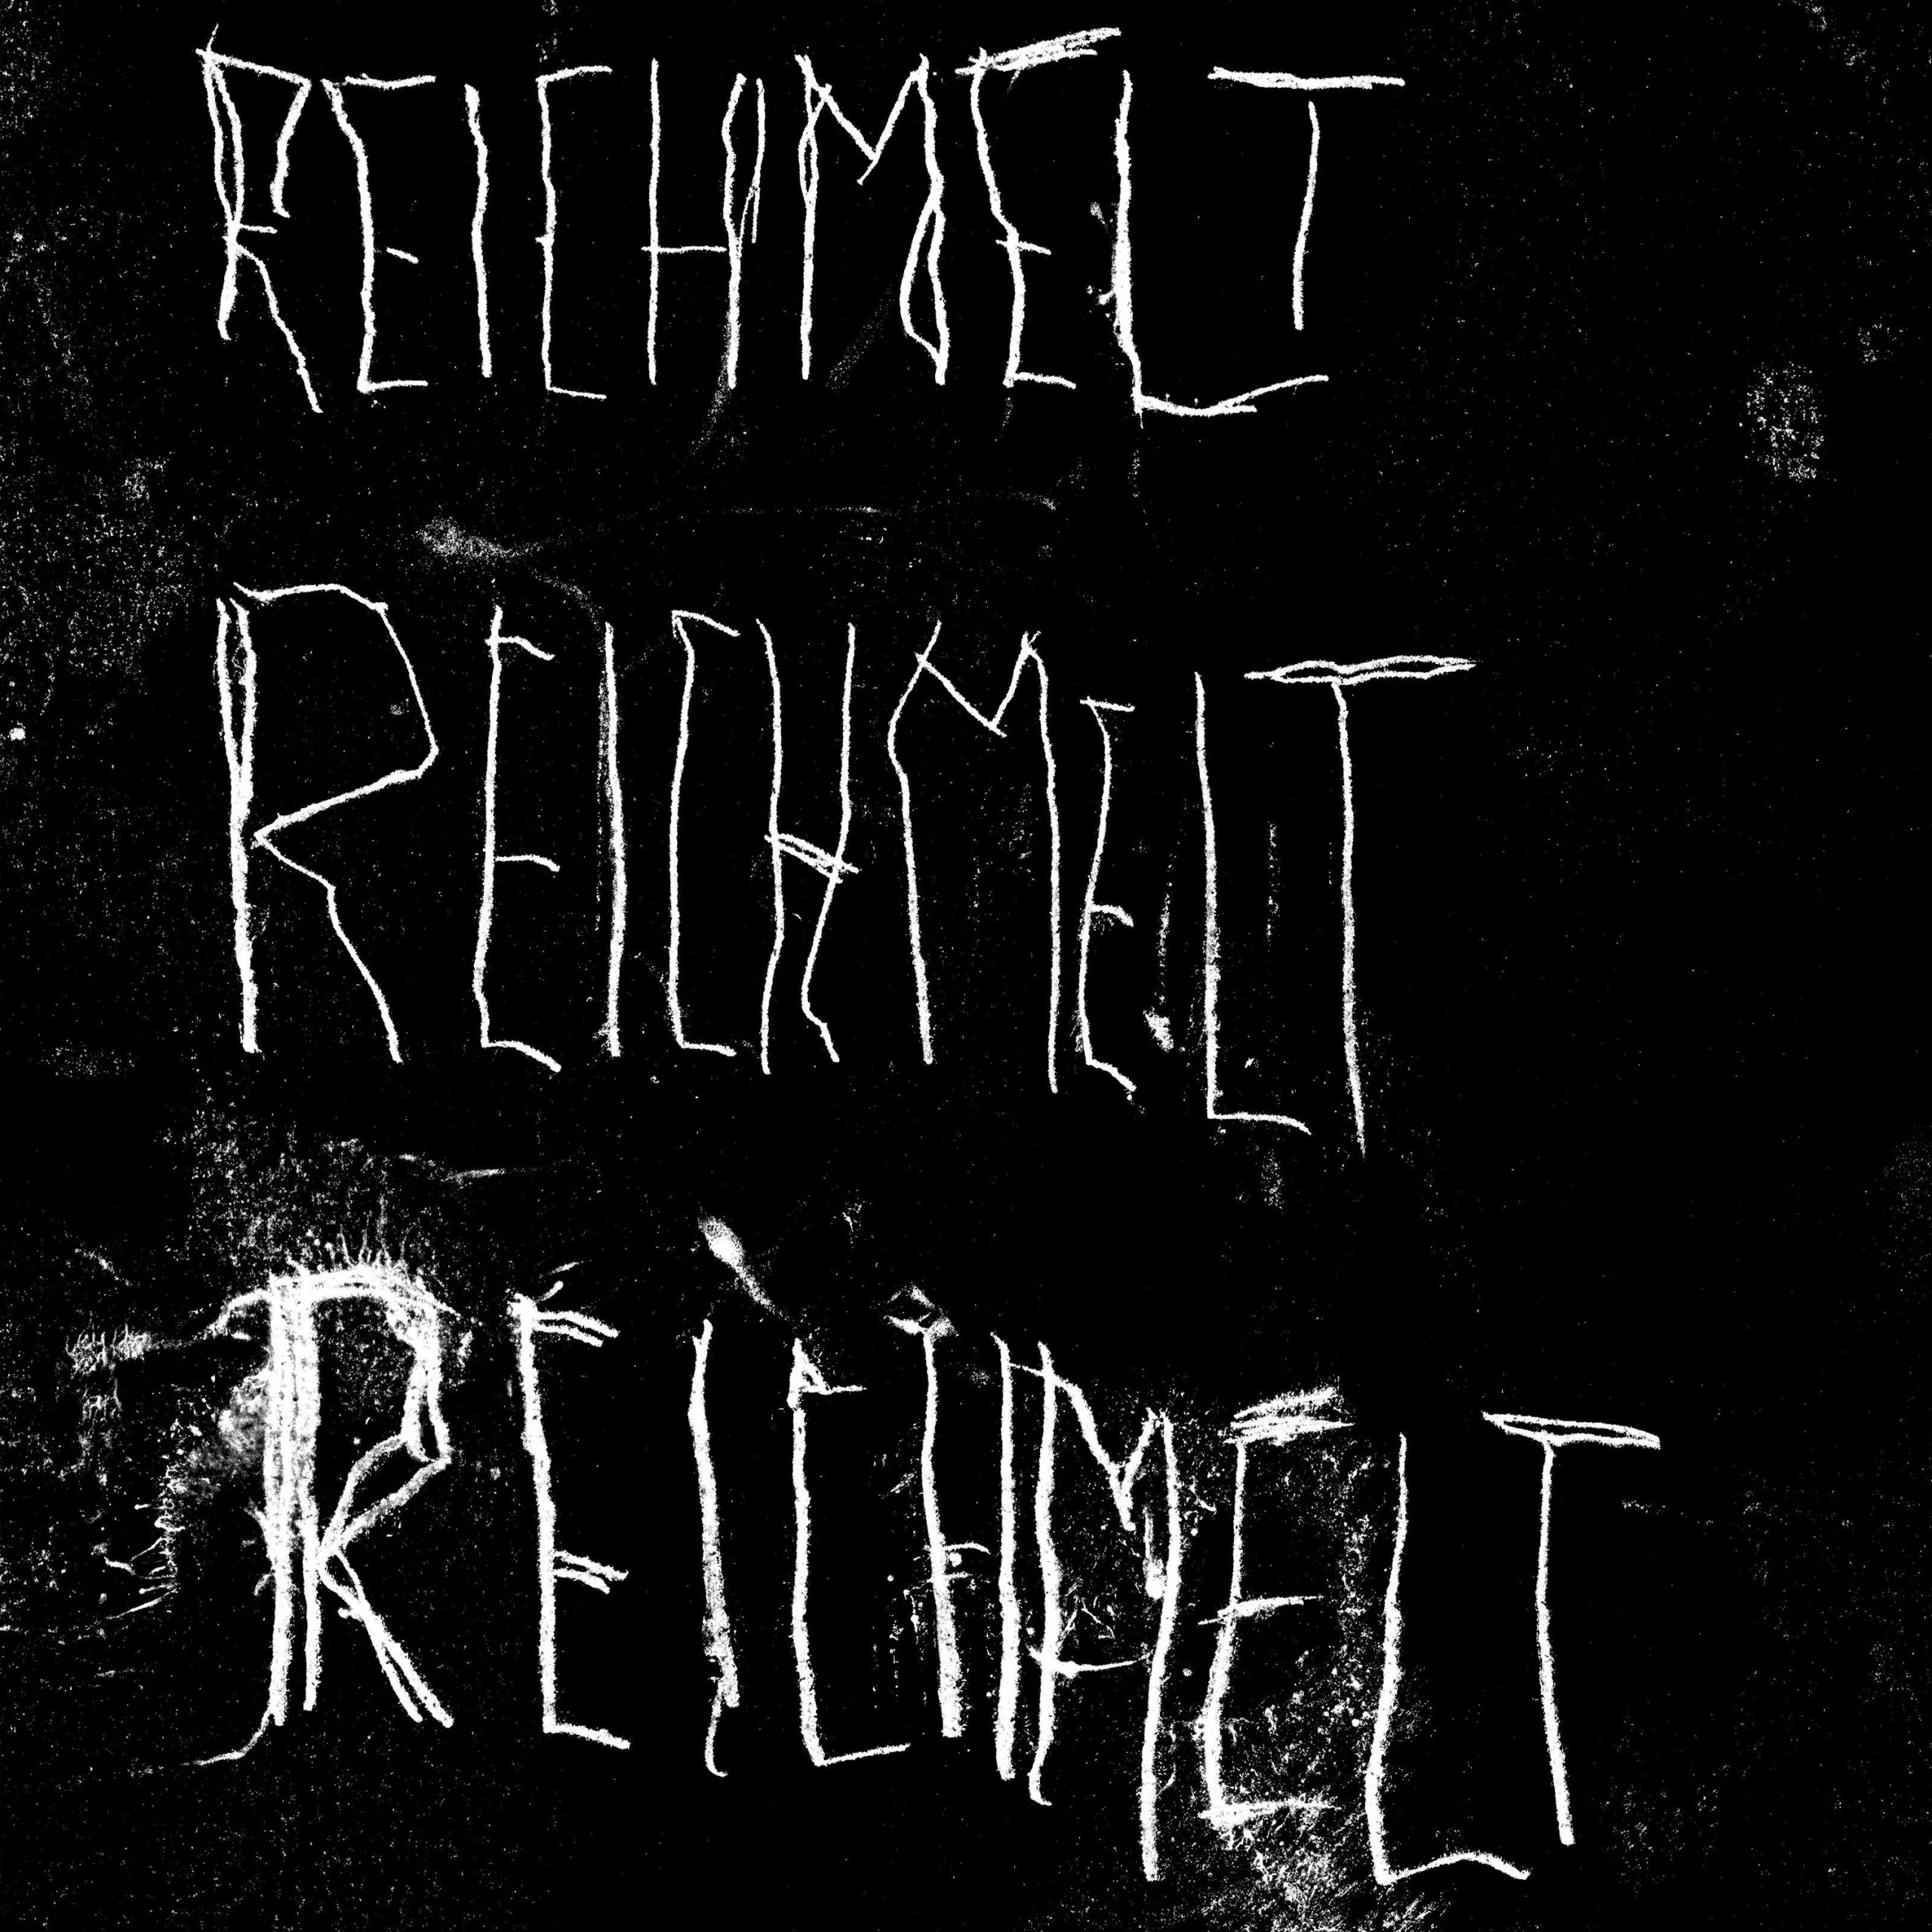 REICHMELT
REICHMELT
REICHMELT